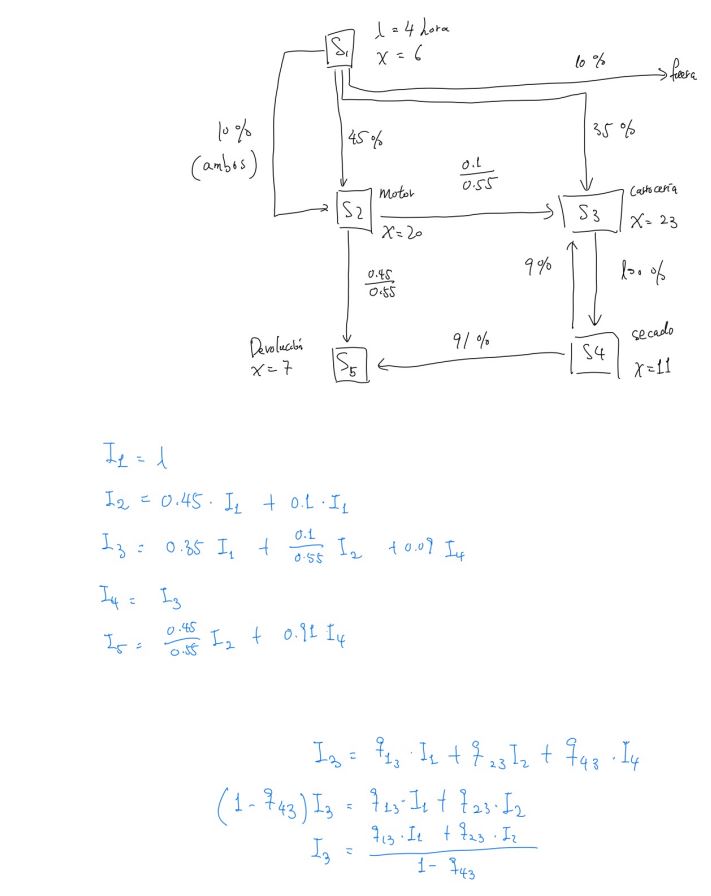 S1
λ = 4 hora
X = 6
10 %
fuera
10 %
(ambos)
45 %
35 %
0.1/0.55
Motor
S2
X = 20
S3
Carrocería
X = 23
0.45/0.55
9 %
100 %
Devolución
X = 7
S5
91 %
S4
secado
X = 11
I1 = λ
I2 = 0.45 · I1 + 0.1 · I1
I3 = 0.35 I1 + 0.1/0.55 I2 + 0.09 I4
I4 = I3
I5 = 0.45/0.55 I2 + 0.91 I4
I3 = q13 · I1 + q23 I2 + q43 · I4
(1 - q43) I3 = q13 · I1 + q23 · I2
I3 = q13 · I1 + q23 · I2 / 1 - q43